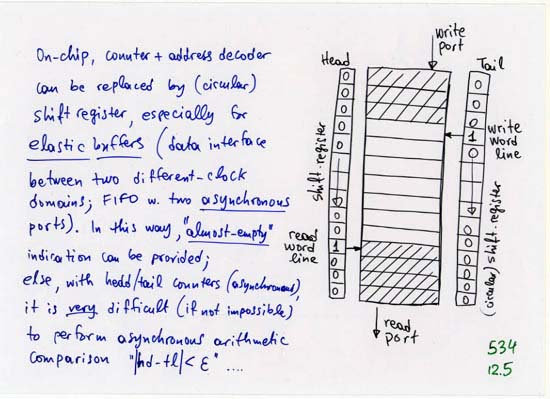 On-chip, counter + address decoder
can be replaced by (circular)
shift register, especially for
elastic buffers (data interface
between two different-clock
domains; FIFO w. two asynchronous
ports). In this way, "almost-empty"
indication can be provided;
else, with head/tail counters (asynchronous),
it is very difficult (if not impossible)
to perform asynchronous arithmetic
comparison "|hd-tl| < ε" ....
write
port
Head
0
0
0
0
0
shift-register
0
0
1
0
0
0
read
word
line
Tail
0
0
0
0
1
0
write
word
line
0
0
0
0
0
(circular) shift-register
read
port
534
12.5